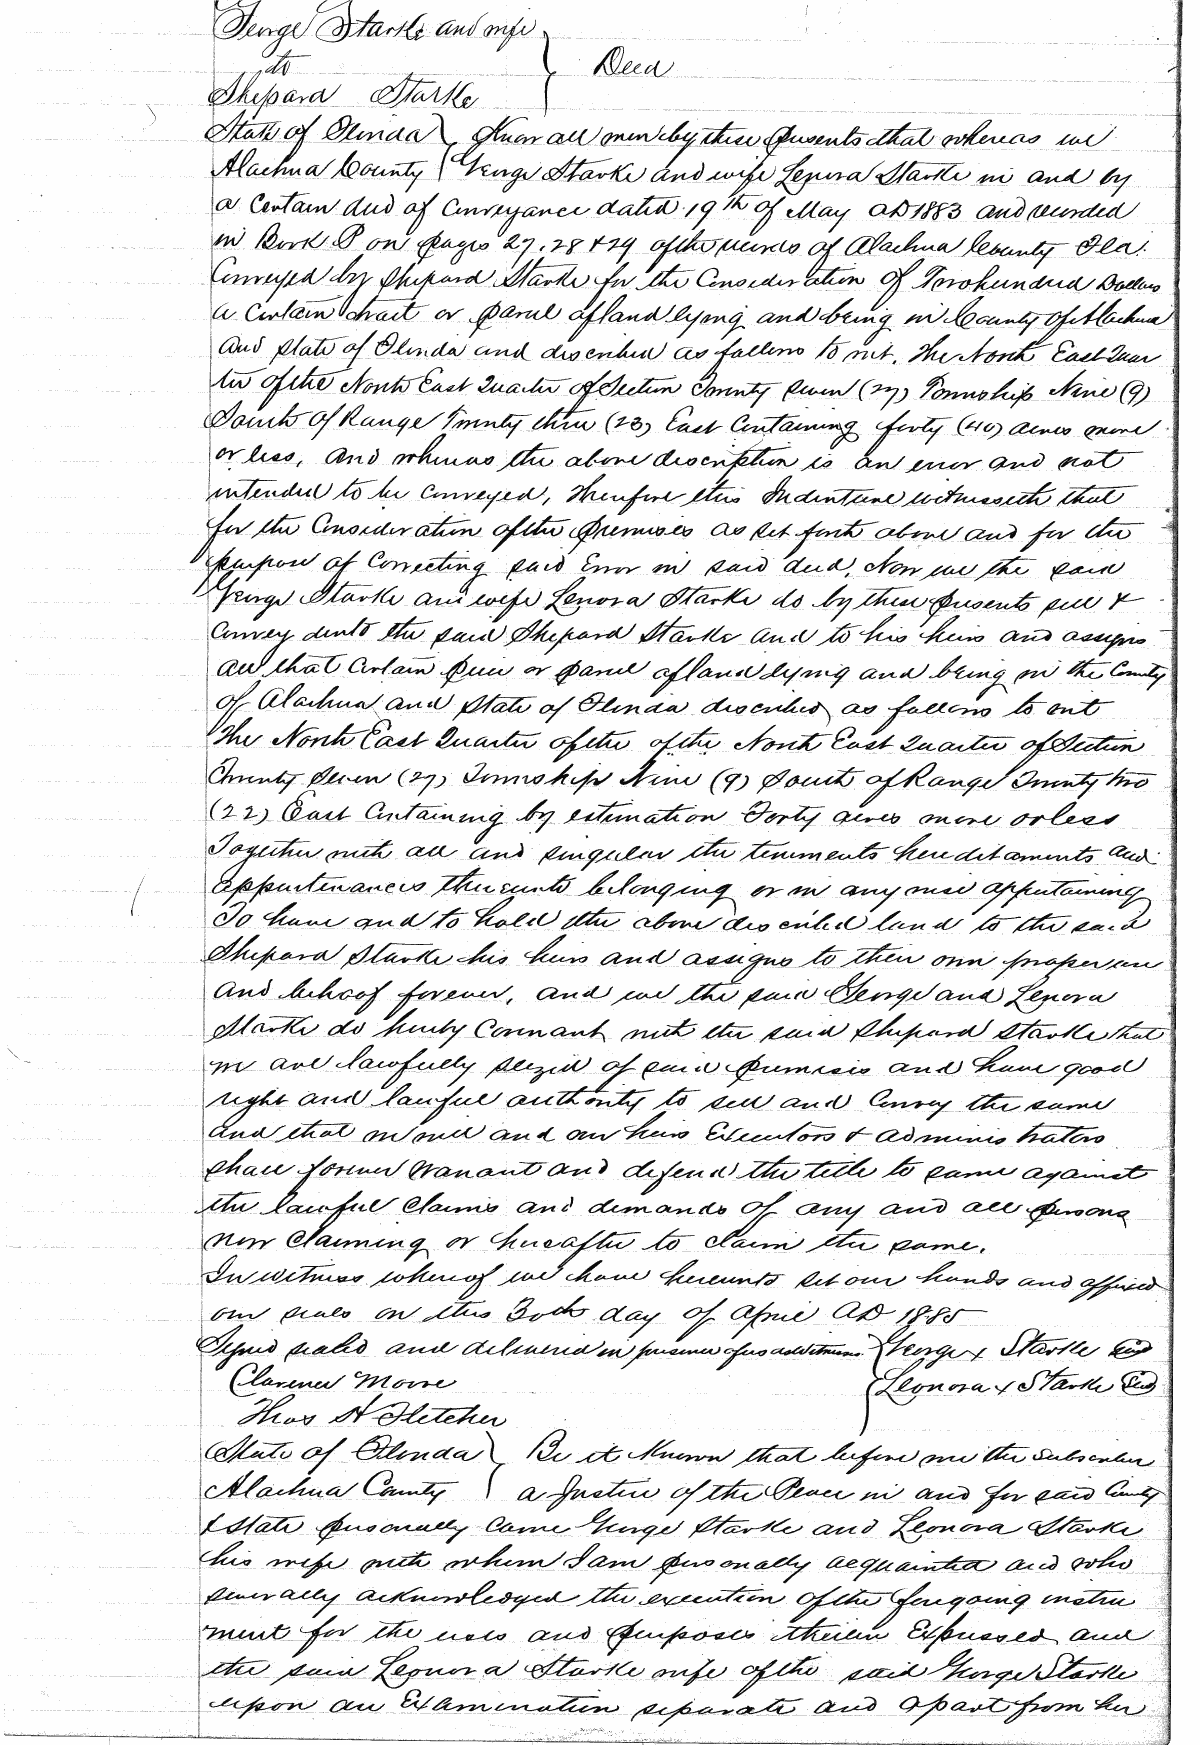 George Starke and wife
to
Deed
Shepard Starke
State of Florida } Know all men by these presents that whereas we
Alachua County } George Starke and wife Lenora Starke in and by
a Certain deed of Conveyance dated 19th of May AD 1883 and recorded
in Book P on pages 27, 28 & 29 of the records of Alachua County Fla.
Conveyed by Shepard Starke for the Consideration of Two hundred Dollars
a Certain tract or parcel of land lying and being in County of Alachua
and State of Florida and described as follows to wit. The North East Quar
ter of the North East Quarter of Section Twenty Seven (27) Township Nine (9)
South of Range Twenty three (23) East Containing forty (40) acres more
or less, and whereas the above description is an error and not
intended to be Conveyed, Therefore this Indenture witnesseth that
for the Consideration of the premises as set forth above and for the
purpose of Correcting said Error in said deed, Now we the said
George Starke and wife Lenora Starke do by these presents sell &
Convey unto the said Shepard Starke and to his heirs and assigns
all that Certain piece or parcel of land lying and being in the County
of Alachua and State of Florida described as follows to wit
The North East Quarter of the of the North East Quarter of Section
Twenty Seven (27) Township Nine (9) South of Range Twenty two
(22) East Containing by estimation Forty acres more or less
Together with all and singular the tenements hereditaments and
appurtenances thereunto belonging or in any wise appertaining
To have and to hold the above described land to the said
Shepard Starke his heirs and assigns to their own proper use
and behoof forever, and we the said George and Lenora
Starke do hereby Covenant with the said Shepard Starke that
we are lawfully seized of said premises and have good
right and lawful authority to sell and Convey the same
and that we will and our heirs Executors & Administrators
shall forever Warrant and defend the title to same against
the lawful Claims and demands of any and all persons
now Claiming or hereafter to claim the same.
In witness whereof we have hereunto set our hands and affixed
our seals on this 30th day of April AD 1885
Signed sealed and delivered in presence of us as witness } George x Starke Seal
Clarence Moore } Leonora x Starke Seal
Thos H Fletcher
State of Florida } Be it Known that before me the Subscriber
Alachua County } a Justice of the Peace in and for said County
& State personally Came George Starke and Leonora Starke
his wife with whom I am personally acquainted and who
severally acknowledged the execution of the foregoing instru
ment for the uses and purposes therein Expressed and
the said Leonora Starke wife of the said George Starke
upon an Examination separate and apart from her